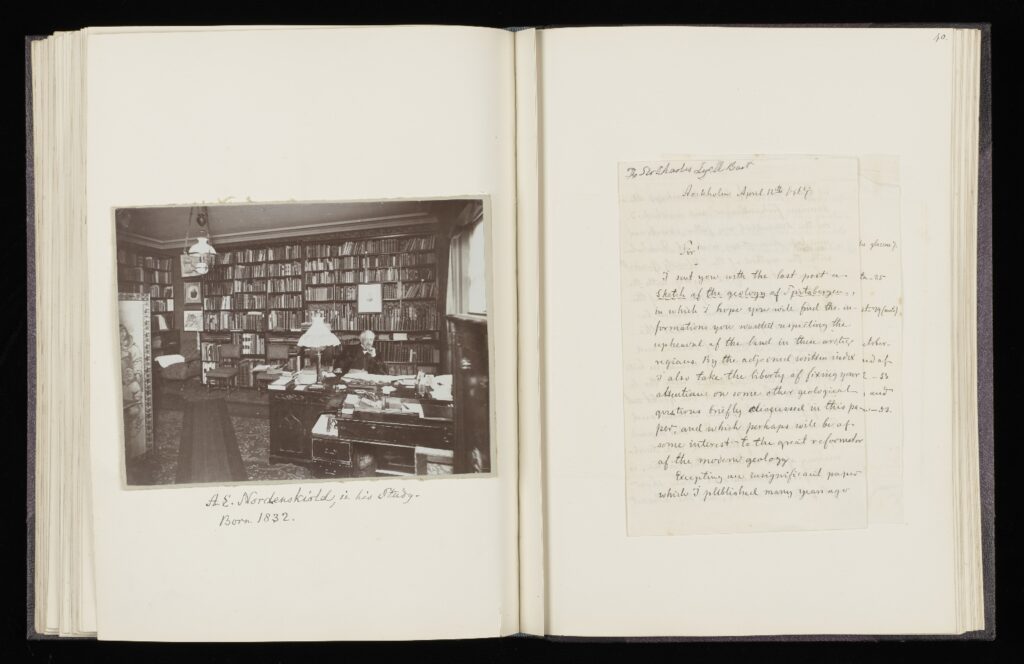 A. E. Nordenskiold, in his Study.
Born 1832.
40.
To Sir Charles Lyell Bart
Stockholm April 12th
Sir!
I sent you with the last post a
Sketch of the geology of Spitsbergen,
in which I hope you will find the in-
formations you wanted respecting the
upheaval of the land in these arctic
regions. By the adjoined written index
I also take the liberty of fixing your
attention on some other geological
questions briefly discussed in this pa-
per, and which perhaps will be of
some interest to the great reformator
of the modern geology.
Excepting an insignificant paper
which I published many years ago